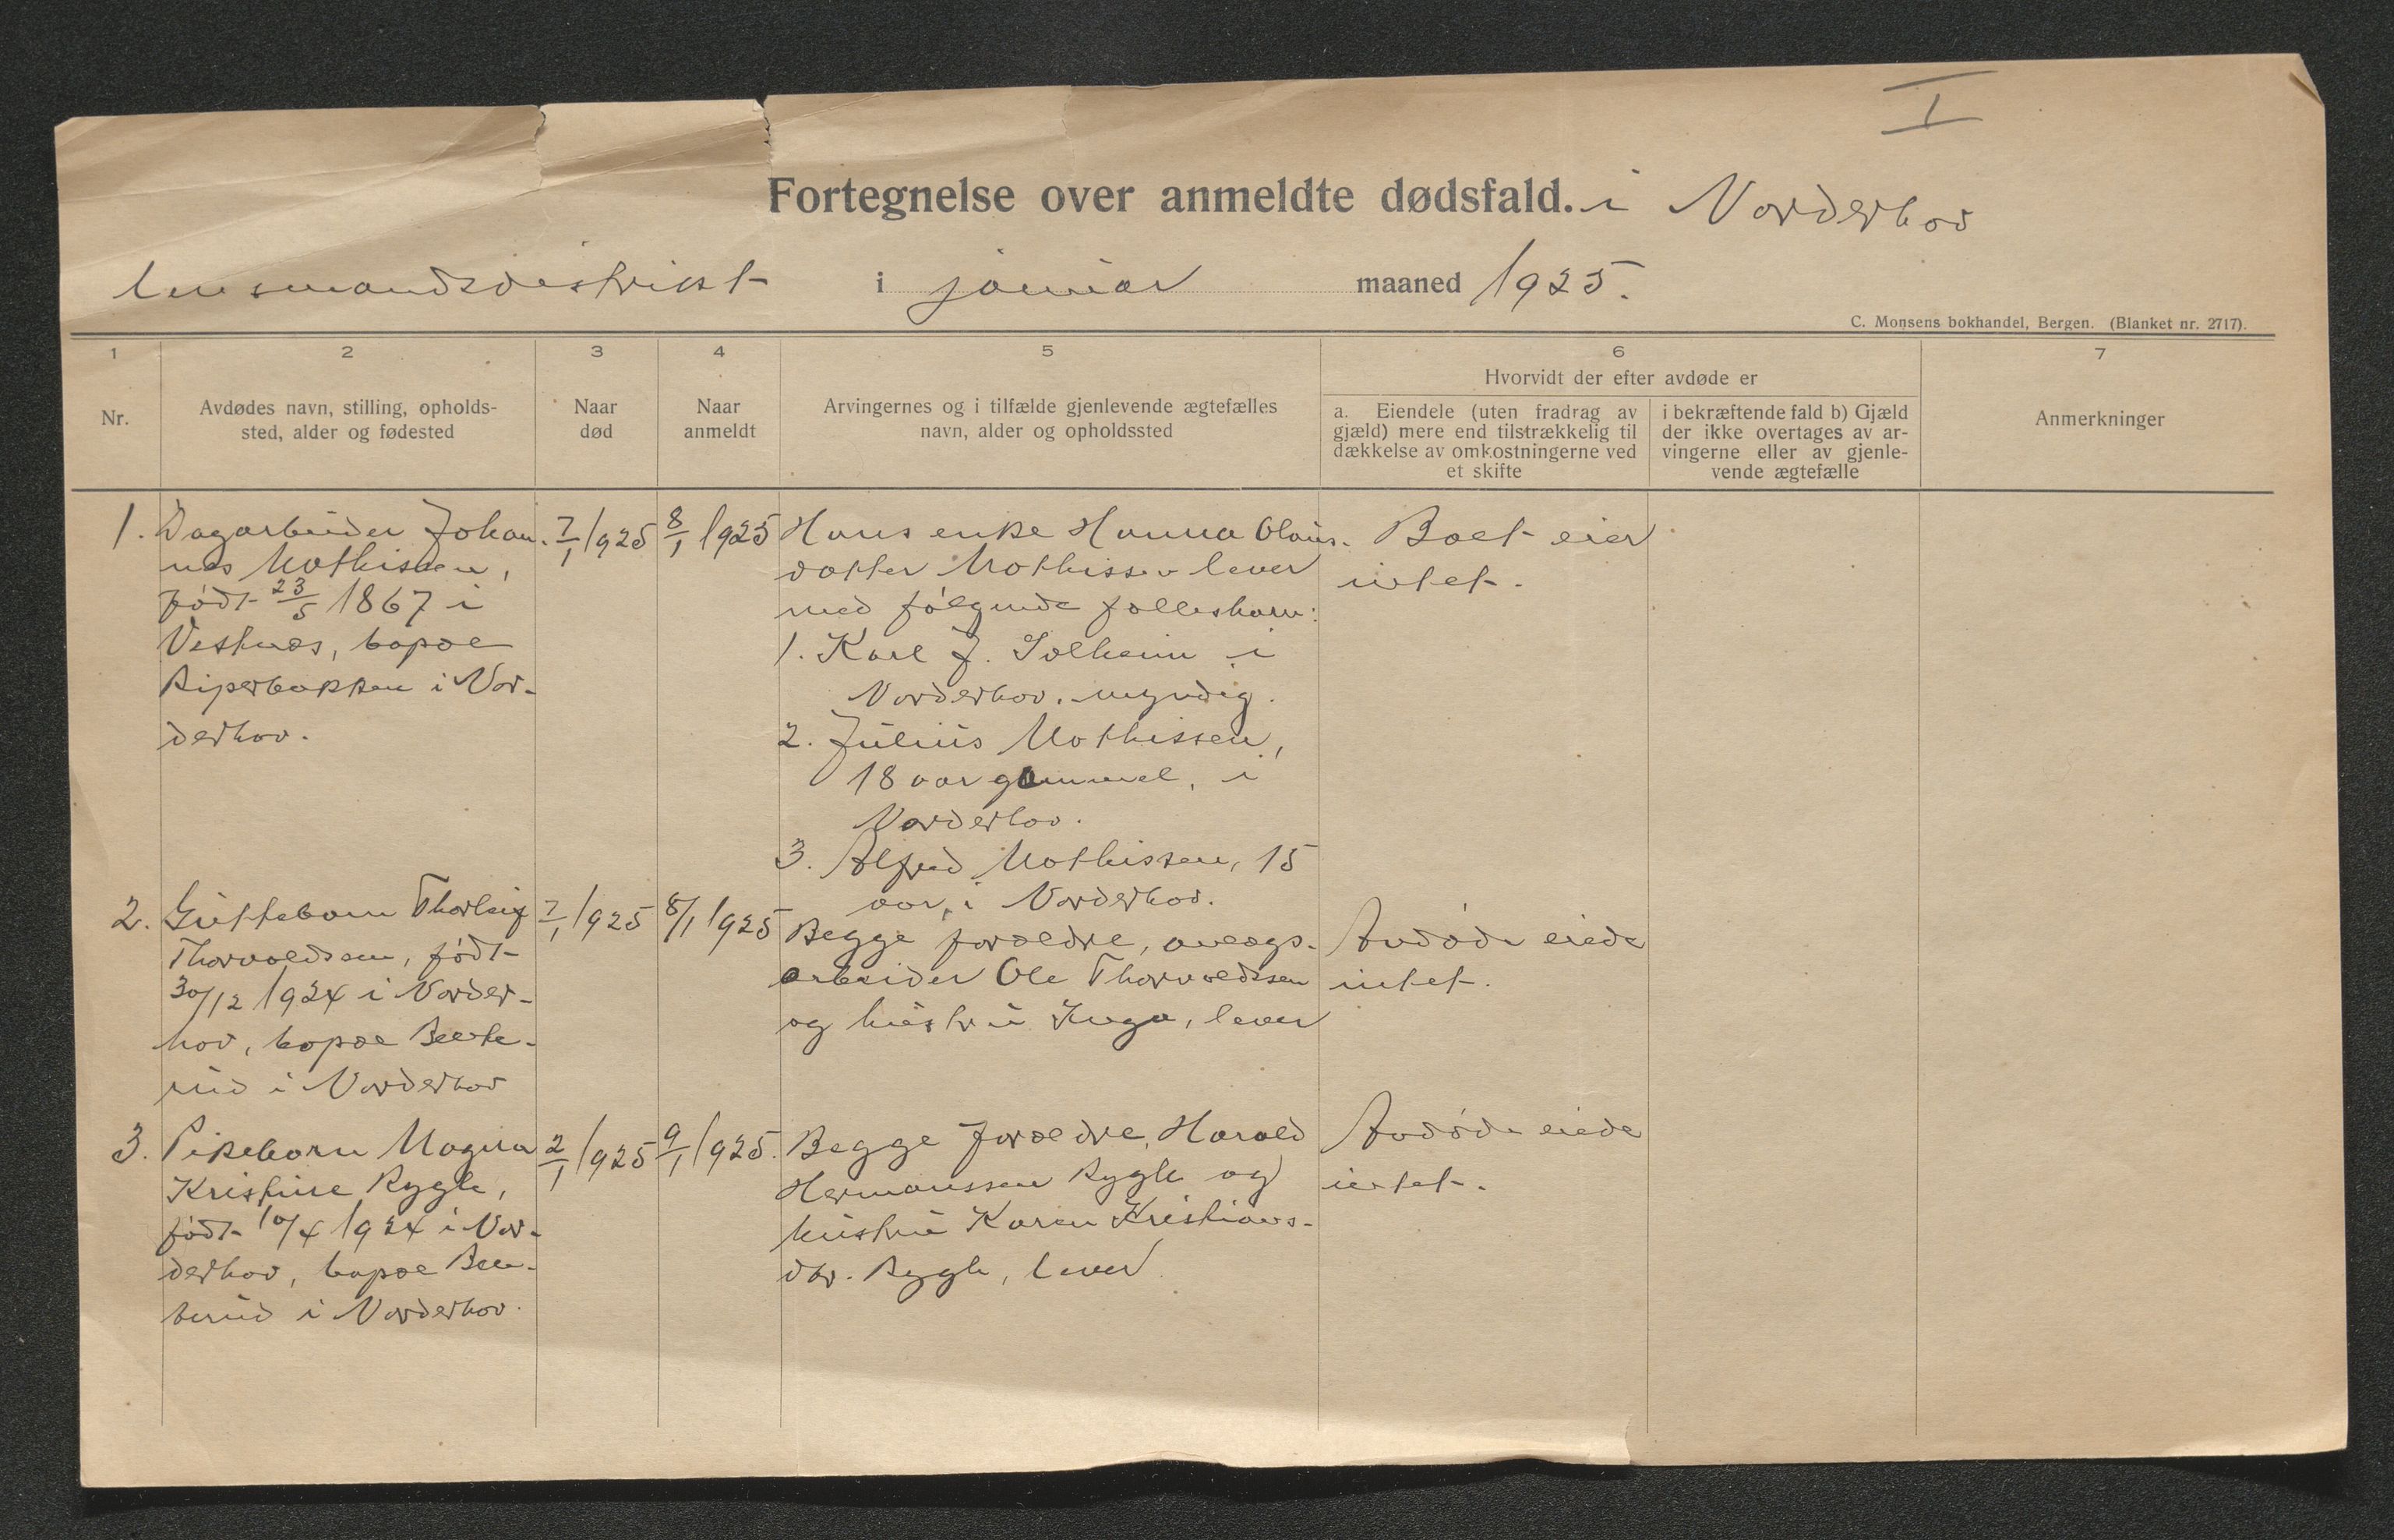 I
Fortegnelse over anmeldte dødsfald. i Norderhov
lensmandsdistrikt i januar maaned 1925.
C. Monsens bokhandel, Bergen. (Blanket nr. 2717).
1 2 3 4 5 6 7
Nr.
Avdødes navn, stilling, opholds-
sted, alder og fødested
Naar
død
Naar
anmeldt
Arvingernes og i tilfælde gjenlevende ægtefælles
navn, alder og opholdssted
Hvorvidt der efter avdøde er
a. Eiendele (uten fradrag av
gjæld) mere end tilstrækkelig til
dækkelse av omkostningerne ved
et skifte
i bekræftende fald b) Gjæld
der ikke overtages av ar-
vingerne eller av gjenle-
vende ægtefælle
Anmerkninger
1. Dagarbeider Johan-
nes Mathissen,
født 23/5 1867 i
Vestnes, bopæl
Riperbakken i Nor-
derhov.
7/1 1925
8/1 1925
Hans enke Hanna Olaus-
datter Mathissen lever
med følgende fællesbarn:
1. Karl J. Solheim i
Norderhov, myndig.
2. Julius Mathissen,
18 aar gammel, i
Norderhov.
3. Alfred Mathissen, 15
aar, i Norderhov.
Boet eier
intet.
2. Guttebarn Thorleif
Thorvaldsen, født
30/12 1924 i Norder-
hov, bopæl
rud i Norderhov
7/1 1925
8/1 1925
Begge forældre, anlægs-
arbeider Ole Thorvaldssen
og hustru Inga, lever
Avdøde eiede
intet.
3. Pikebarn Magna
Kristine Rygh,
født 10/4 1924 i Nor-
derhov, bopæl
berud i Norderhov.
2/1 1925
9/1 1925.
Begge forældre, Harald
Hermanssen Rygh og
hustru Karen Kristians-
dtr. Rygh, lever
Avdøde eiede
intet.